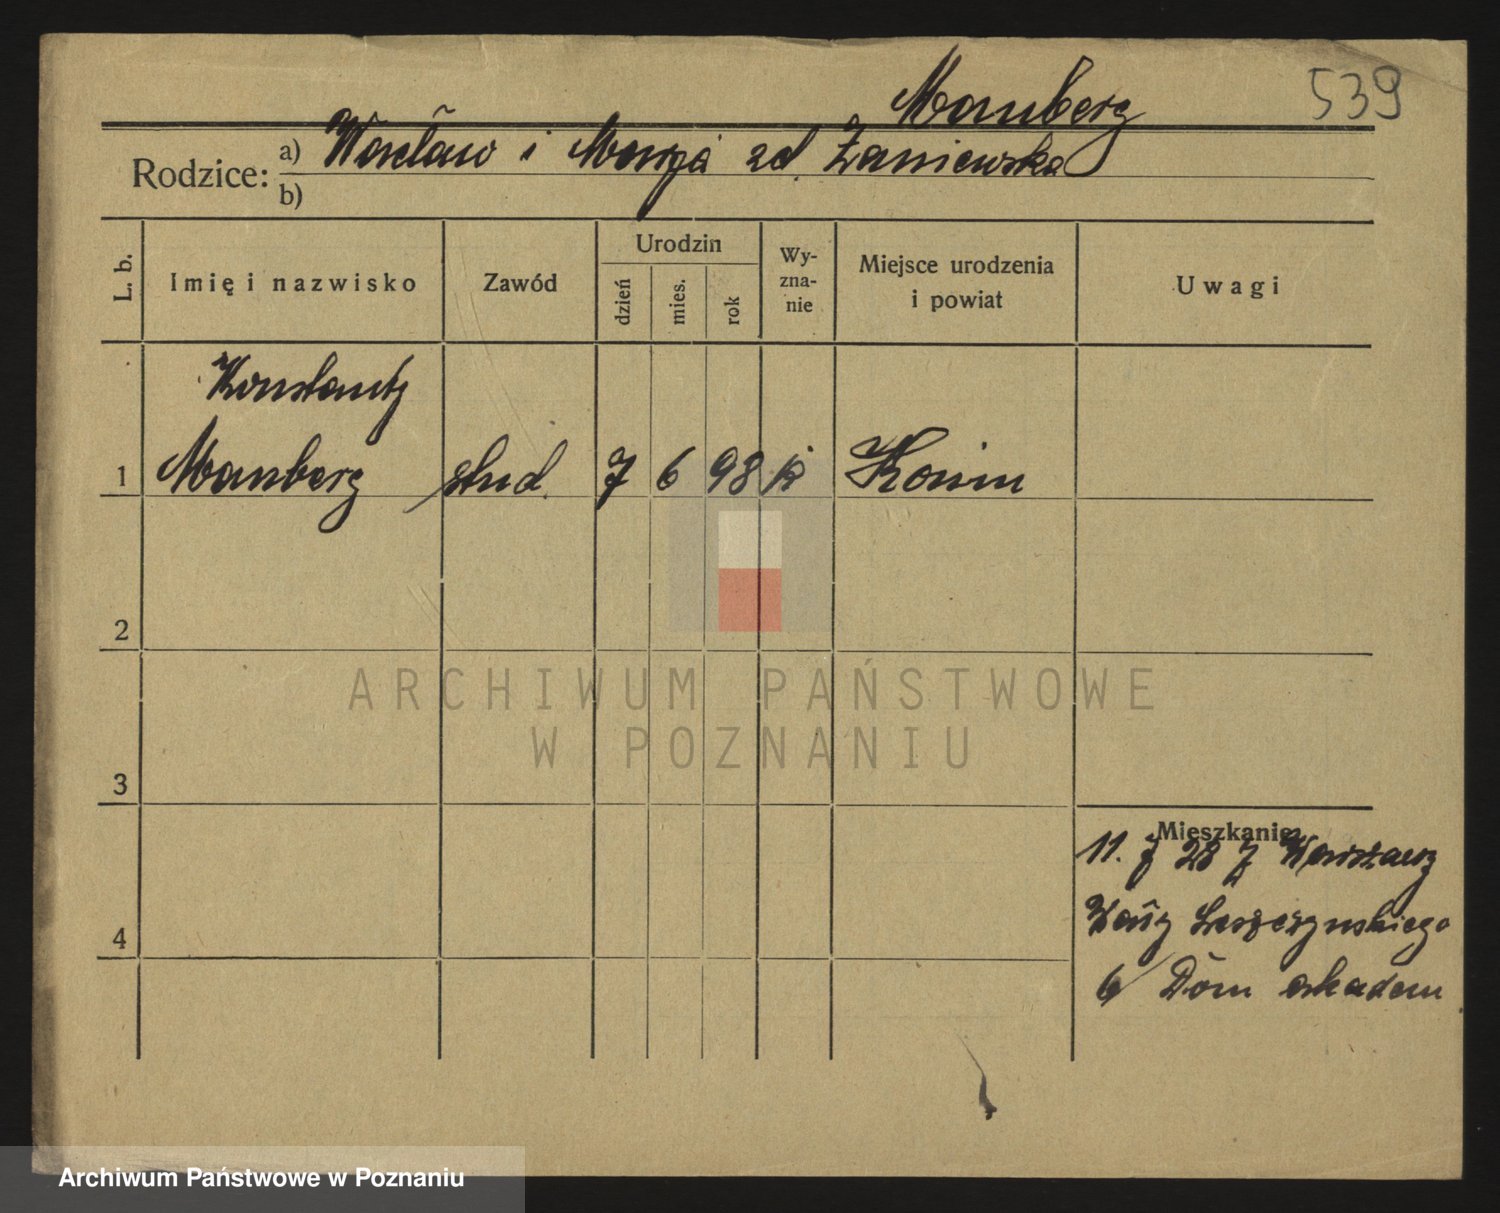 539
Manberg
Rodzice: a) Wacław i Marja zd. Zaniewska
b)
L. b.
Imię i nazwisko
Zawód
Urodzin
dzień
mies.
rok
Wy-
zna-
nie
Miejsce urodzenia
i powiat
Uwagi
Konstanty
1 Manberg stud. 7 6 98 k Konin
2
ARCHIWUM PAŃSTWOWE
W POZNANIU
3
Mieszkanie:
11. 28 z Warszawy
Wały Leszczyńskiego
4
6 Dom akadem
Archiwum Państwowe w Poznaniu